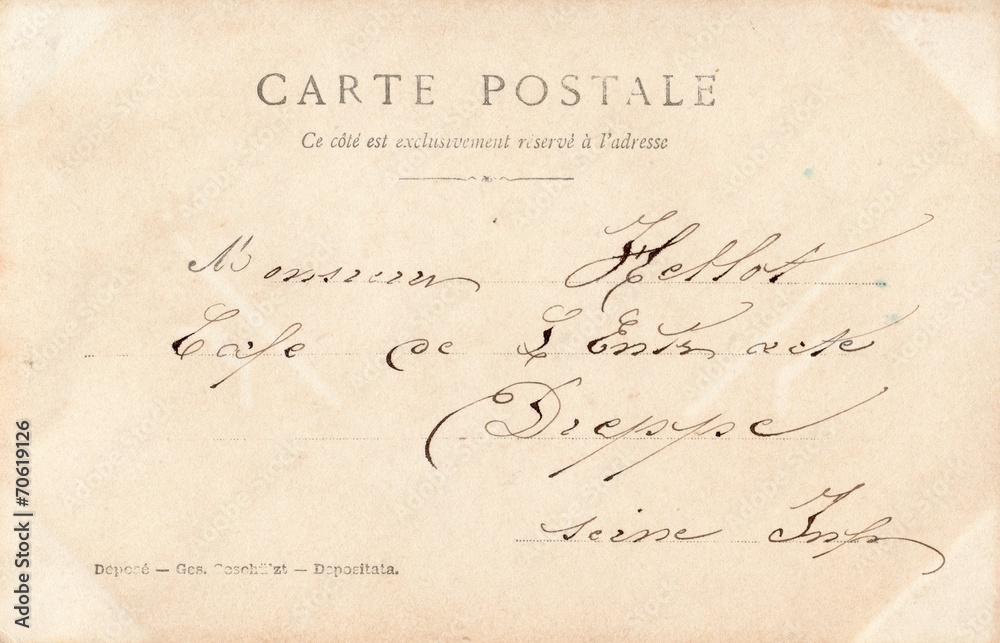 CARTE POSTALE
Ce côté est exclusivement réservé à l'adresse
Monsieur Hellot
Cafe de L'Entr acte
Dieppe
seine Infr
Déposé — Ges. Geschützt — Depositata.
Adobe Stock | #70619126